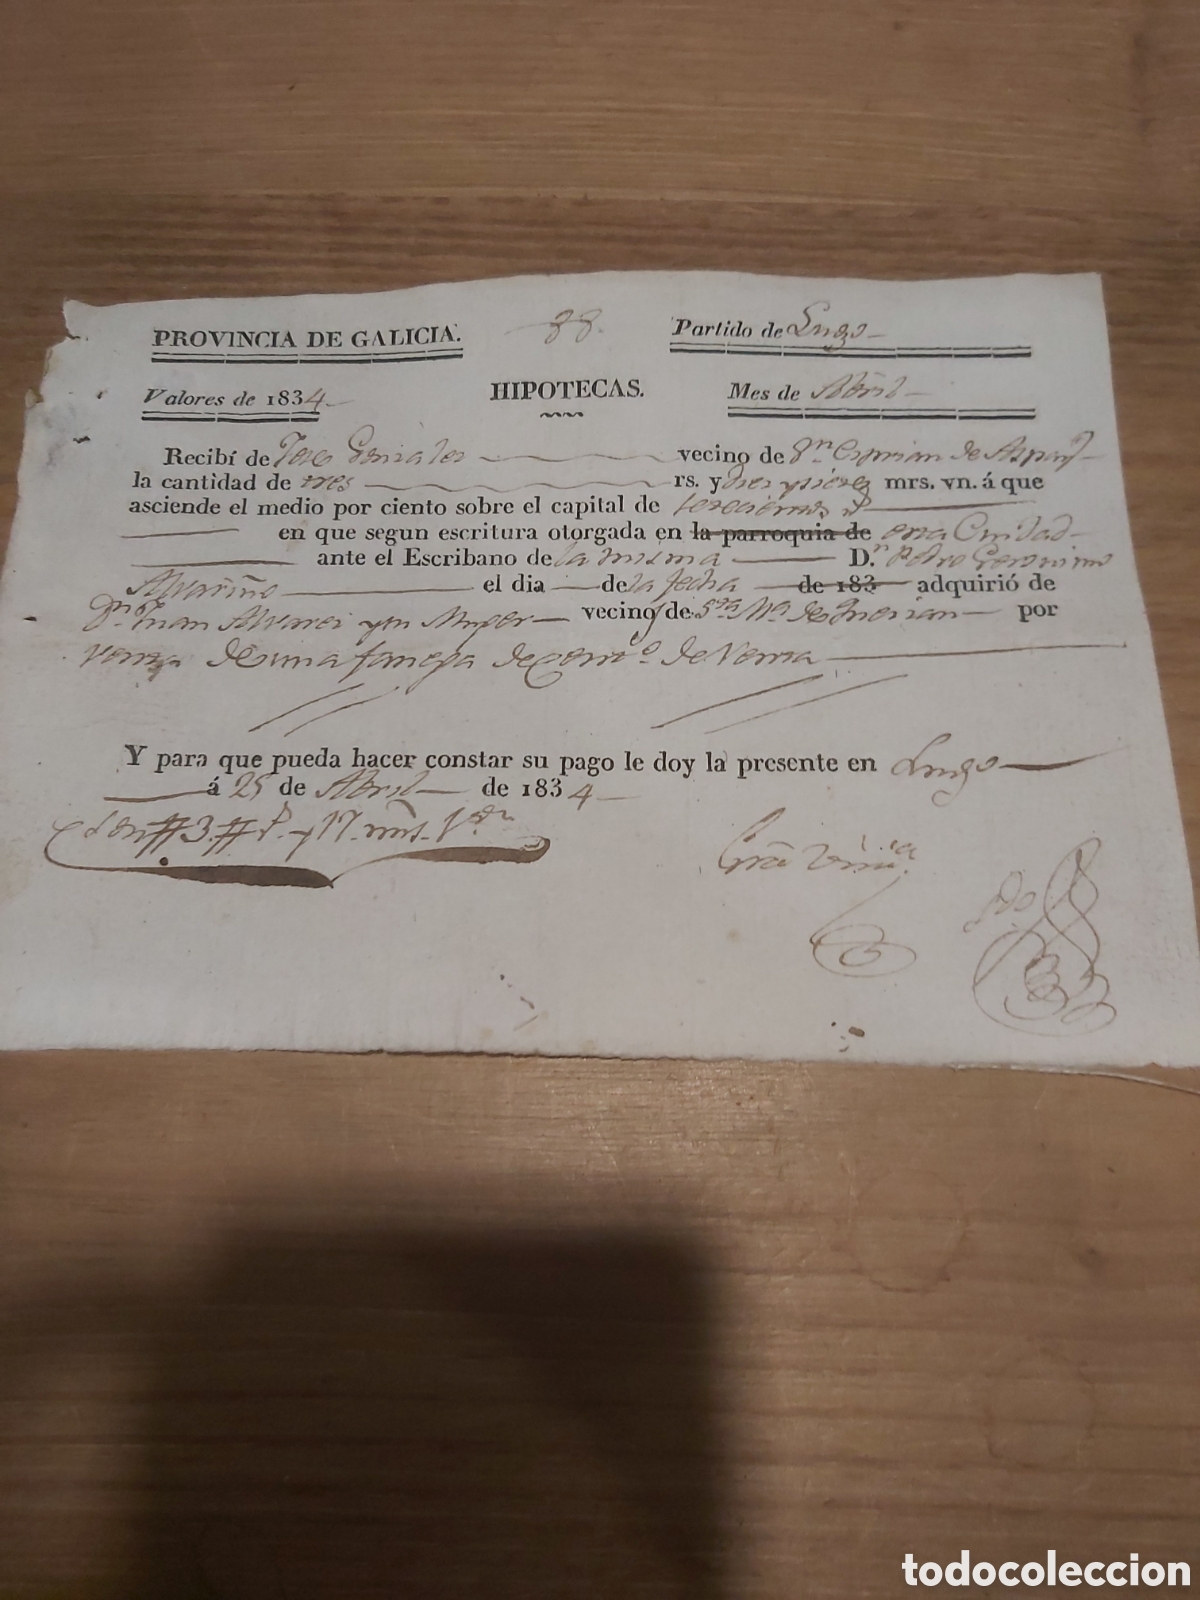 PROVINCIA DE GALICIA. 88. Partido de Lugo
Valores de 1834 HIPOTECAS. Mes de Abril
Recibí de Gonzalez vecino de Sn. Ciprian de
la cantidad de tres rs. y diez y siete mrs. vn. á que
asciende el medio por ciento sobre el capital de
en que segun escritura otorgada en la parroquia de esta Ciudad
ante el Escribano de la misma D.n Pedro Geronimo
Alvariño el dia de la fecha de 183 adquirió de
Dn. Juan Alvarez y su Muger vecino de Sta. Ma. de por
venta de una fanega de de Renta
Y para que pueda hacer constar su pago le doy la presente en Lugo
á 25 de Abril de 1834
Son # 3 # rs. y 17 mrs.